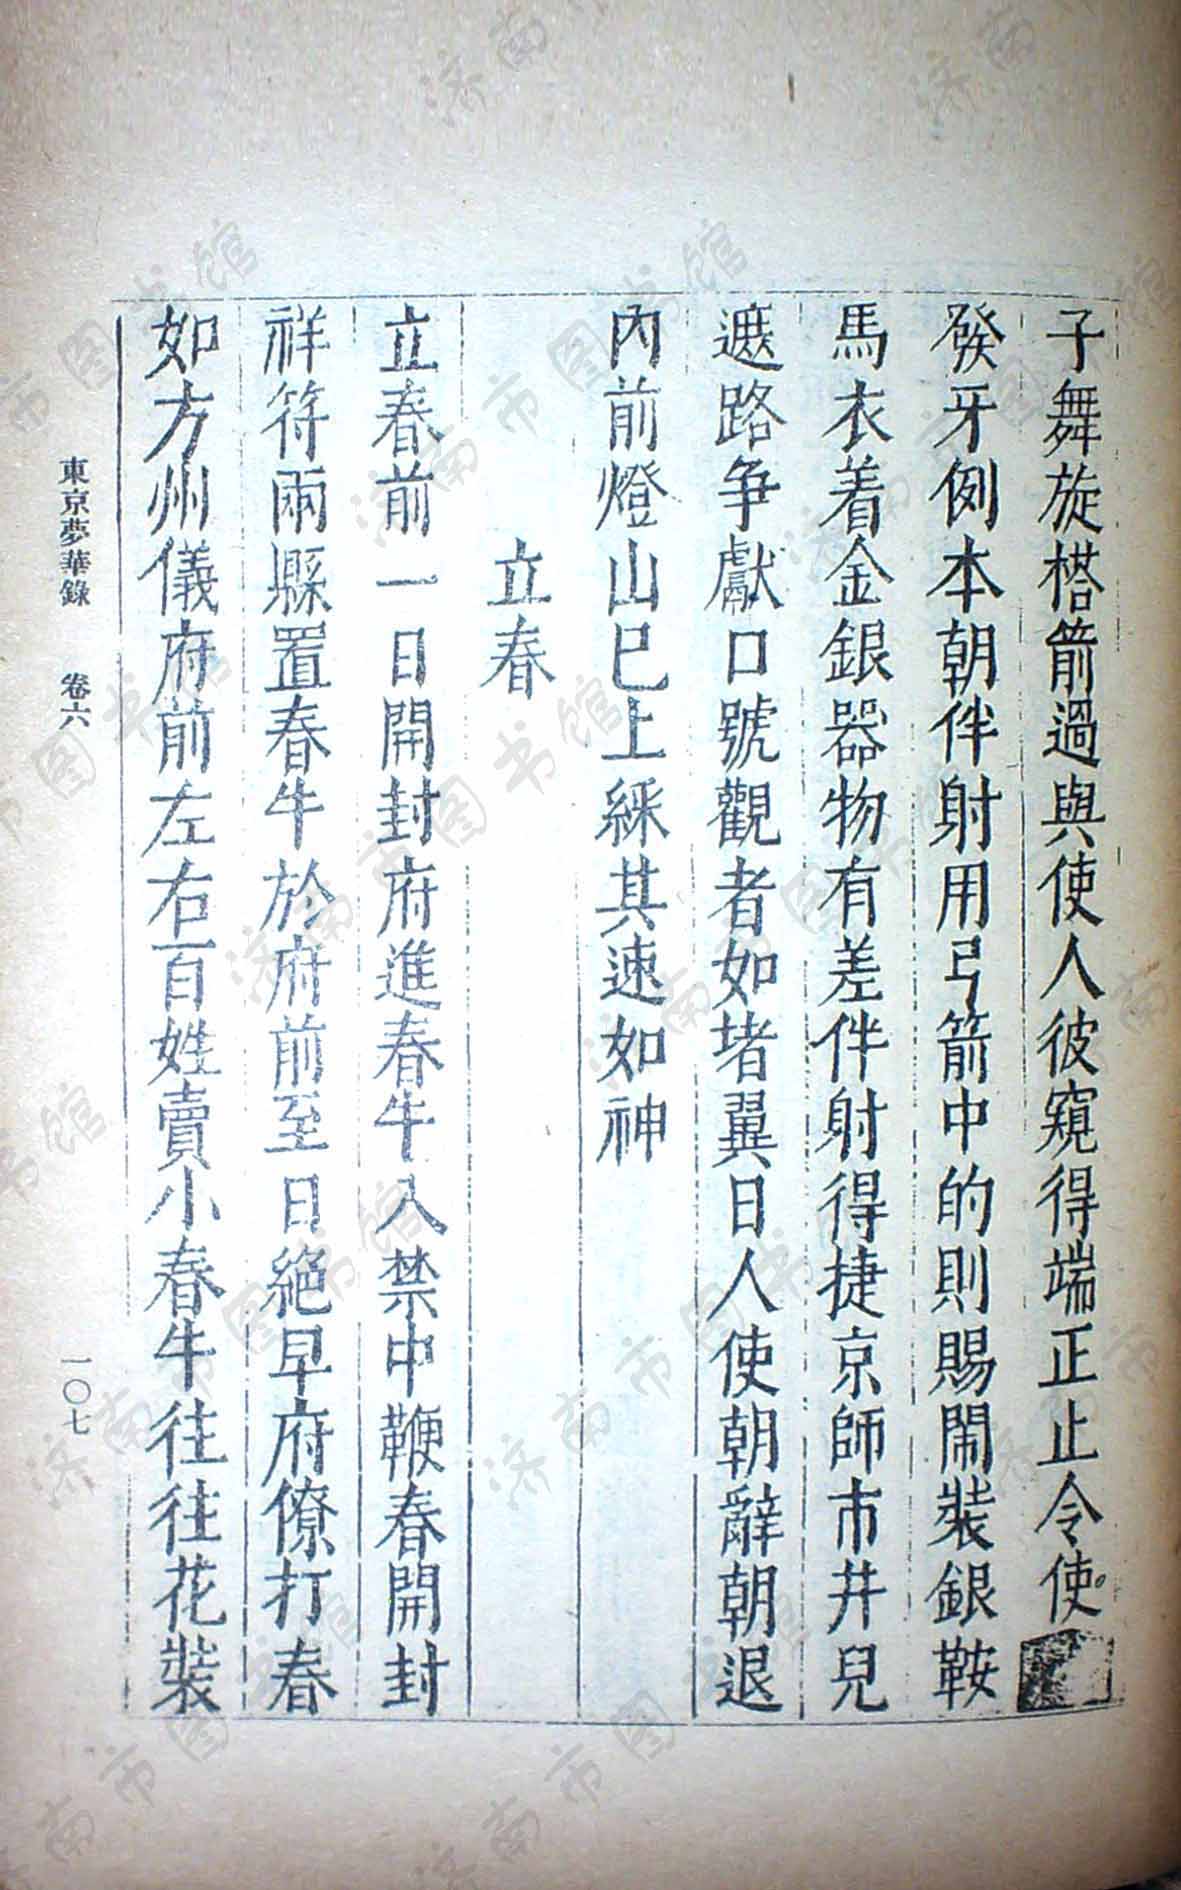 子舞旋搭箭過與使人彼窺得端正止令使
發牙例本朝伴射用弓箭中的則賜鬧裝銀鞍
馬衣着金銀器物有差伴射得捷京師市井兒
遮路争獻口號觀者如堵翼日人使朝辭朝退
內前燈山巳上綵其速如神
立春
立春前一日開封府進春牛入禁中鞭春開封
祥符兩縣置春牛於府前至日絕早府僚打春
如方州儀府前左右百姓賣小春牛往往花裝
東京夢華錄 卷六 一〇七
济南市图书馆